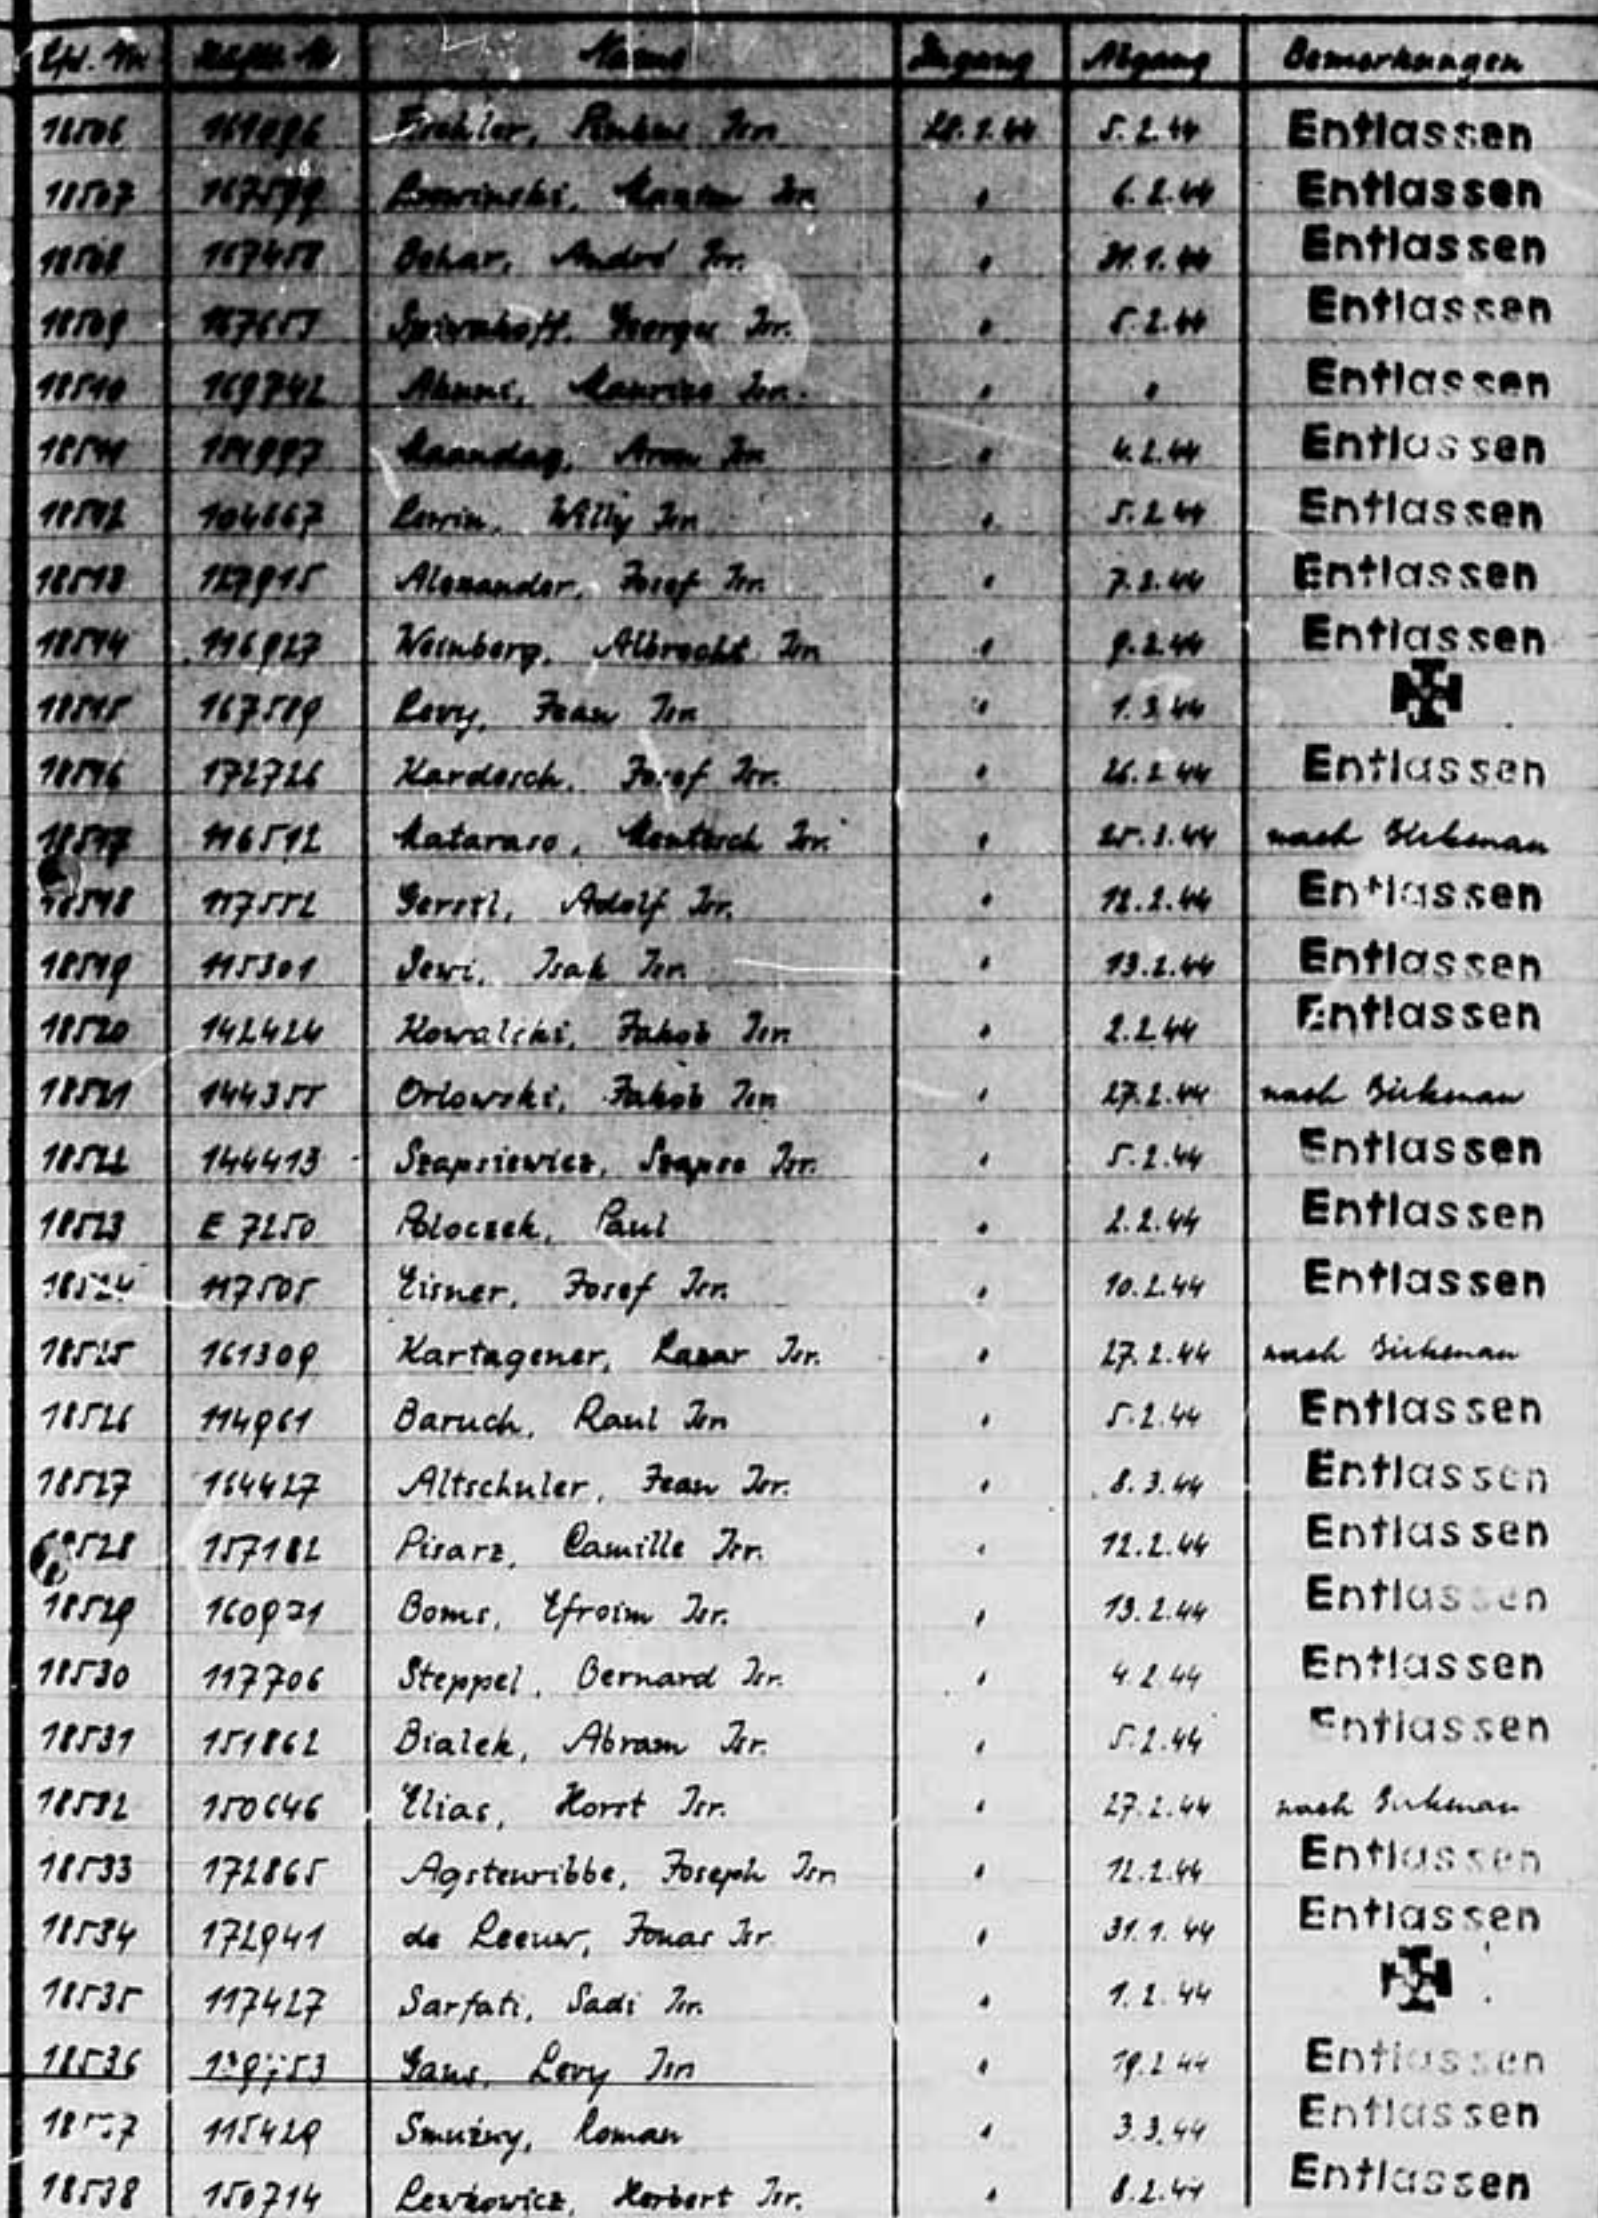 Lfd. Nr. Name Zugang Abgang Bemerkungen
18506 Pinkus Isr. 28.1.44 5.2.44 Entlassen
18507 167599 Isr. " 6.2.44 Entlassen
18508 167458 Behar, André Isr. " 31.1.44 Entlassen
18509 Spiwakoff, George Isr. " 5.2.44 Entlassen
18510 169742 Maurice Isr. " " Entlassen
18511 Maandag, Aron Isr. " 4.2.44 Entlassen
18512 104667 Lewin, Willy Isr. " 5.2.44 Entlassen
18513 127915 Alexander, Josef Isr. " 7.2.44 Entlassen
18514 116927 Weinberg, Albrecht Isr. " 9.2.44 Entlassen
18515 167589 Levy, Jean Isr. " 1.3.44
18516 172726 Kardosch, Josef Isr. " 26.2.44 Entlassen
18517 116512 Mataraso, Mentesch Isr. " 25.1.44 nach Birkenau
18518 117552 Gerstl, Adolf Isr. " 12.2.44 Entlassen
18519 115301 Sewi, Isak Isr. " 13.2.44 Entlassen
18520 142424 Kowalski, Jakob Isr. " 2.2.44 Entlassen
18521 144355 Orlowski, Jakob Isr. " 27.2.44 nach Birkenau
18522 144413 Szapsiewicz, Szapse Isr. " 5.2.44 Entlassen
18523 E 7250 Poloczek, Paul " 2.2.44 Entlassen
18524 117505 Eisner, Josef Isr. " 10.2.44 Entlassen
18525 161309 Kartagener, Lazar Isr. " 27.2.44 nach Birkenau
18526 114961 Baruch, Raul Isr. " 5.2.44 Entlassen
18527 164427 Altschuler, Jean Isr. " 8.3.44 Entlassen
18528 157182 Pisarz, Camille Isr. " 12.2.44 Entlassen
18529 160971 Boms, Efroim Isr. " 13.2.44 Entlassen
18530 117706 Steppel, Bernard Isr. " 4.2.44 Entlassen
18531 151862 Bialek, Abram Isr. " 5.2.44 Entlassen
18532 150646 Elias, Horst Isr. " 27.2.44 nach Birkenau
18533 172865 Agstenribbe, Joseph Isr. " 12.2.44 Entlassen
18534 172941 de Leeuw, Jonas Isr. " 31.1.44 Entlassen
18535 117427 Sarfati, Sadi Isr. " 1.2.44
18536 Gans, Levy Isr. " 19.2.44 Entlassen
18537 115429 Smużny, Roman " 3.3.44 Entlassen
18538 150714 Lewkowicz, Herbert Isr. " 8.2.44 Entlassen